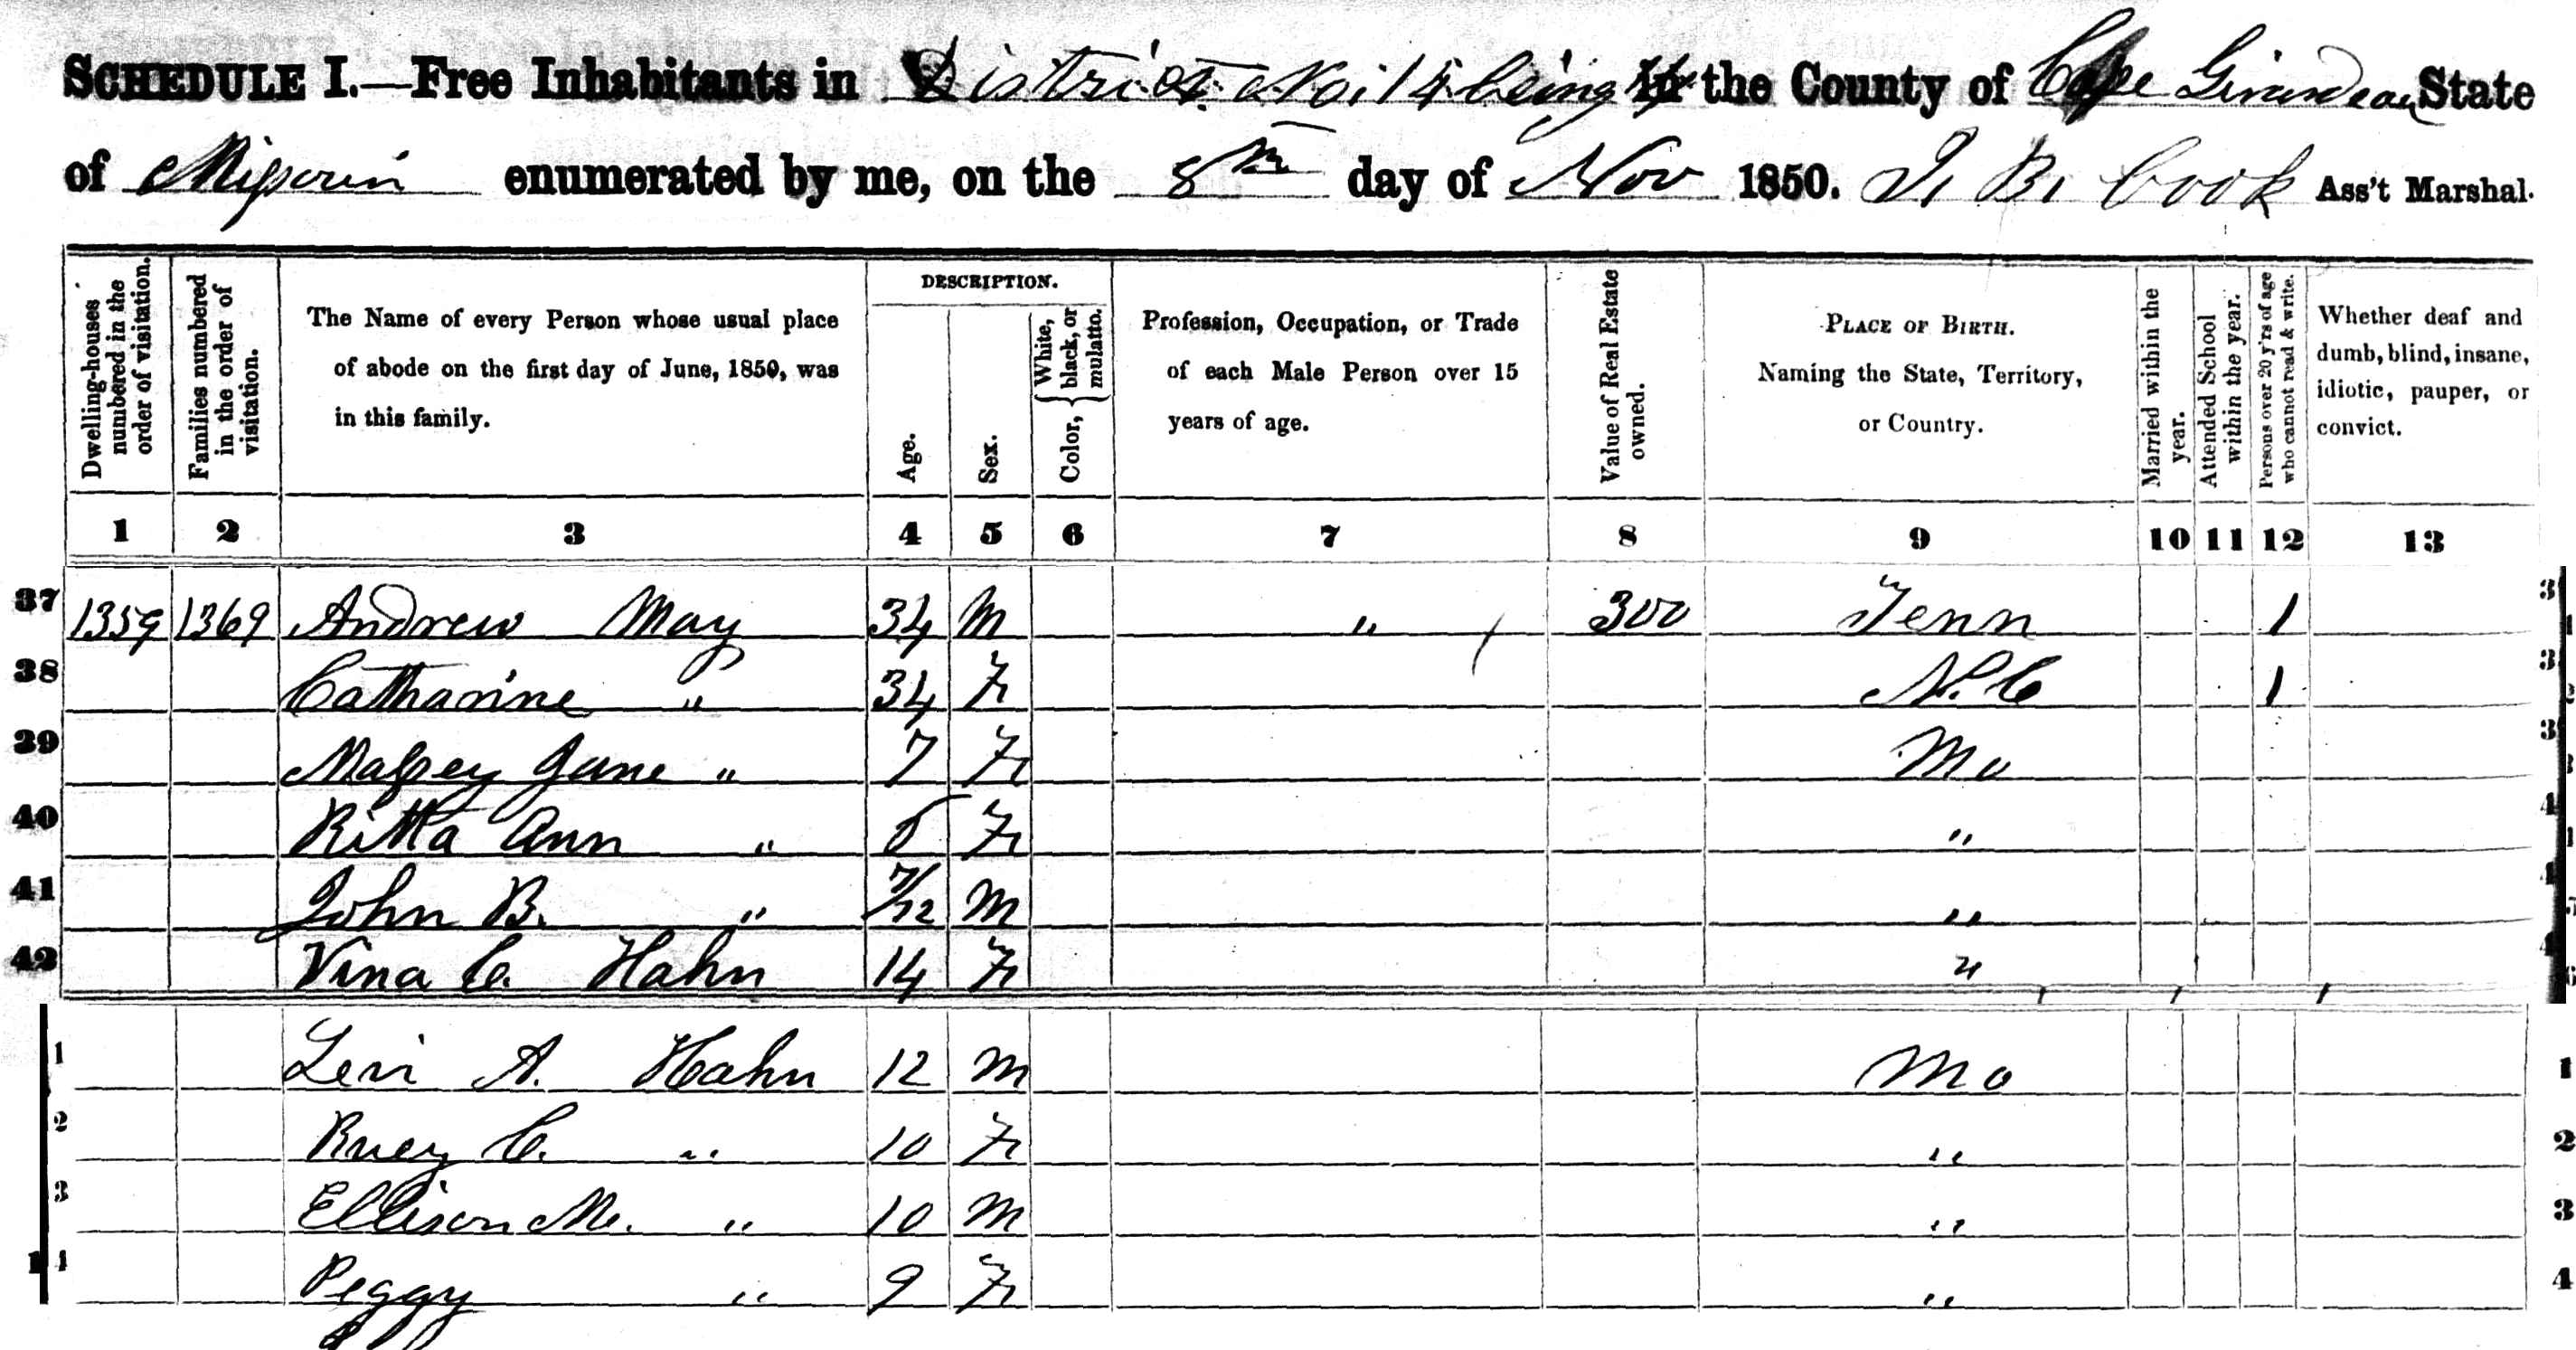 SCHEDULE I.—Free Inhabitants in District No. 14 being in the County of Cape Girardeau State
of Missouri enumerated by me, on the 8th day of Nov 1850. T. B. Cook Ass't Marshal.
Dwelling-houses numbered in the order of visitation.
Families numbered in the order of visitation.
The Name of every Person whose usual place of abode on the first day of June, 1850, was in this family.
DESCRIPTION.
Age.
Sex.
Color, { White, black, or mulatto.
Profession, Occupation, or Trade of each Male Person over 15 years of age.
Value of Real Estate owned.
PLACE OF BIRTH. Naming the State, Territory, or Country.
Married within the year.
Attended School within the year.
Persons over 20 y'rs of age who cannot read & write.
Whether deaf and dumb, blind, insane, idiotic, pauper, or convict.
1 2 3 4 5 6 7 8 9 10 11 12 13
37 1359 1369 Andrew May 34 M " 300 Tenn 1
38 Catharine " 34 F N.C 1
39 Jane " 7 F Mo
40 Ritta Ann " 5 F "
41 John B. " 7/12 M "
42 Vina C. Hahn 14 F "
1 Levi A. Hahn 12 M Mo 1
2 C. " 10 F " 2
3 Ellison M. " 10 M " 3
4 Peggy " 9 F " 4